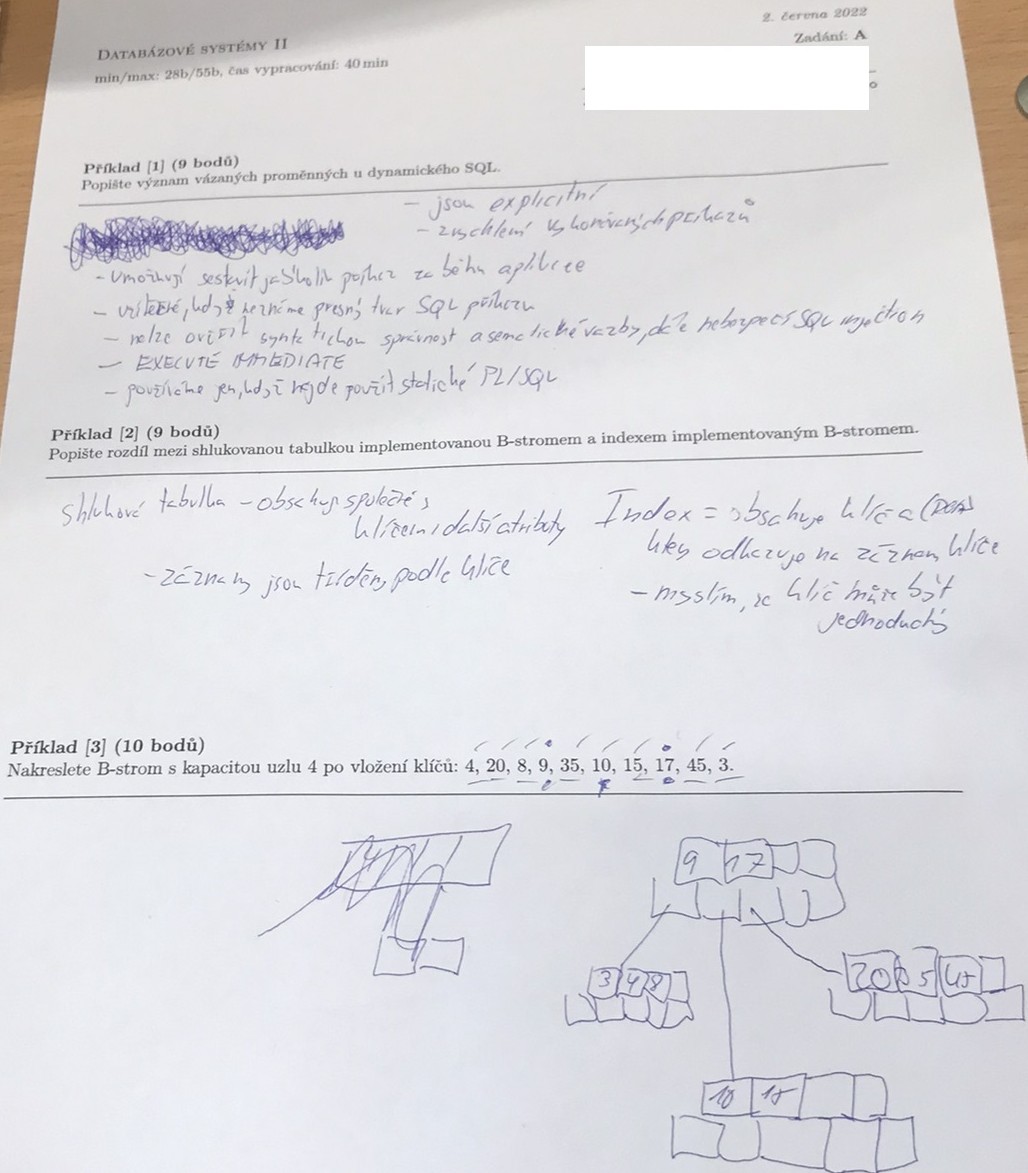 2. června 2022
DATABÁZOVÉ SYSTÉMY II
Zadání: A
min/max: 28b/55b, čas vypracování: 40 min
Příklad [1] (9 bodů)
Popište význam vázaných proměnných u dynamického SQL.
- jsou explicitní
- zrychlení vykonávaných příkazů
- umožňují sestavit jakýkoliv za běhu aplikace
- užitečné, když neznáme přesný tvar SQL příkazu
- nelze ověřit správnost a vazby, dále nebezpečí SQL injection
- EXECUTE IMMEDIATE
- používáme jen, když nejde použít statické PL/SQL
Příklad [2] (9 bodů)
Popište rozdíl mezi shlukovanou tabulkou implementovanou B-stromem a indexem implementovaným B-stromem.
shluková tabulka - obsahuje společně s
klíčem i další atributy
- záznamy jsou tříděny podle klíče
Index = obsahuje klíč a
odkazuje na záznam klíče
- myslím, že klíč může být
jednoduchý
Příklad [3] (10 bodů)
Nakreslete B-strom s kapacitou uzlu 4 po vložení klíčů: 4, 20, 8, 9, 35, 10, 15, 17, 45, 3.
9 17
3 4 8
20 35 45
10 15